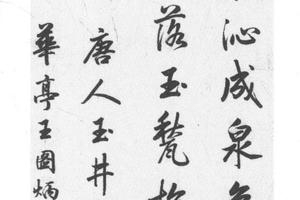 沁成泉
落玉甃
唐人玉井
華亭王圖炳